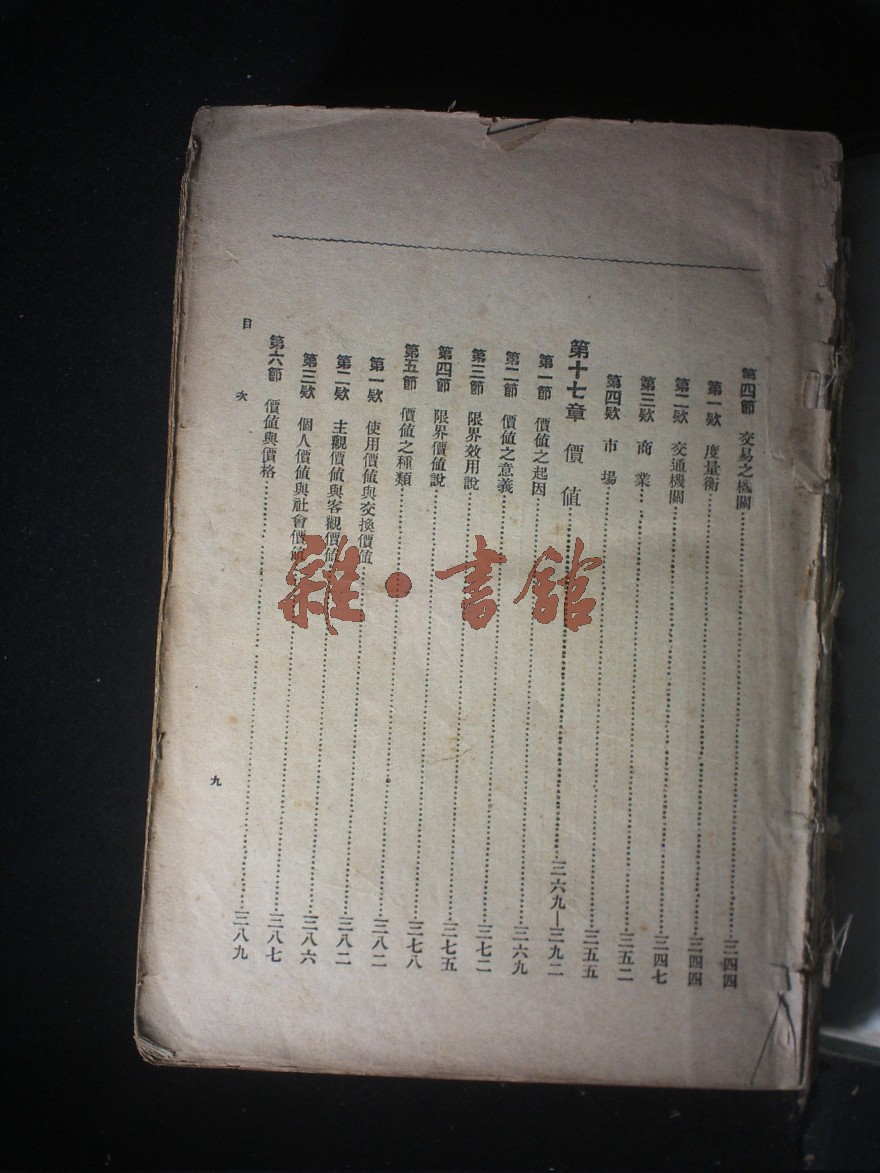 第四節　交易之機關…………三四四
第一欵　度量衡…………三四四
第二欵　交通機關…………三四七
第三欵　商業…………三五二
第四欵　市場…………三五五
第十七章　價值…………三六九—三九二
第一節　價值之起因…………三六九
第二節　價值之意義…………三七二
第三節　限界效用說…………三七五
第四節　限界價值說…………三七八
第五節　價值之種類…………三八二
第一欵　使用價值與交換價值…………三八二
第二欵　主觀價值與客觀價值…………三八六
第三欵　個人價值與社會價值…………三八七
第六節　價值與價格…………三八九
目次
九
雜·書館